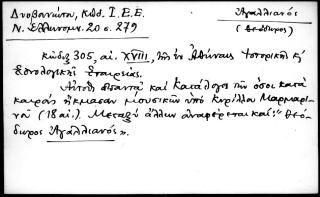 Δυοβουνιώτη, Κ.Θ. Ι. Ε. Ε.
Ν. Ἑλληνομν. 20 σ. 279
Ἀγαλλιανός
(Θεόδωρος)
Κώδιξ 305, αἰ. XVIII, τῆς ἐν Ἀθήναις Ἱστορικῆς κ'
Ἐθνολογικῆς Ἑταιρείας.
καὶ Κατάλογος τῶν ὅσοι κατὰ
καιρὸν ἤκμασαν μουσικῶν ὑπὸ Κυρίλλου Μαρμαρι-
νοῦ (18 αἰ.). Μεταξὺ ἄλλων ἀναφέρεται καὶ: "Θεό-
δωρος Ἀγαλλιανός".